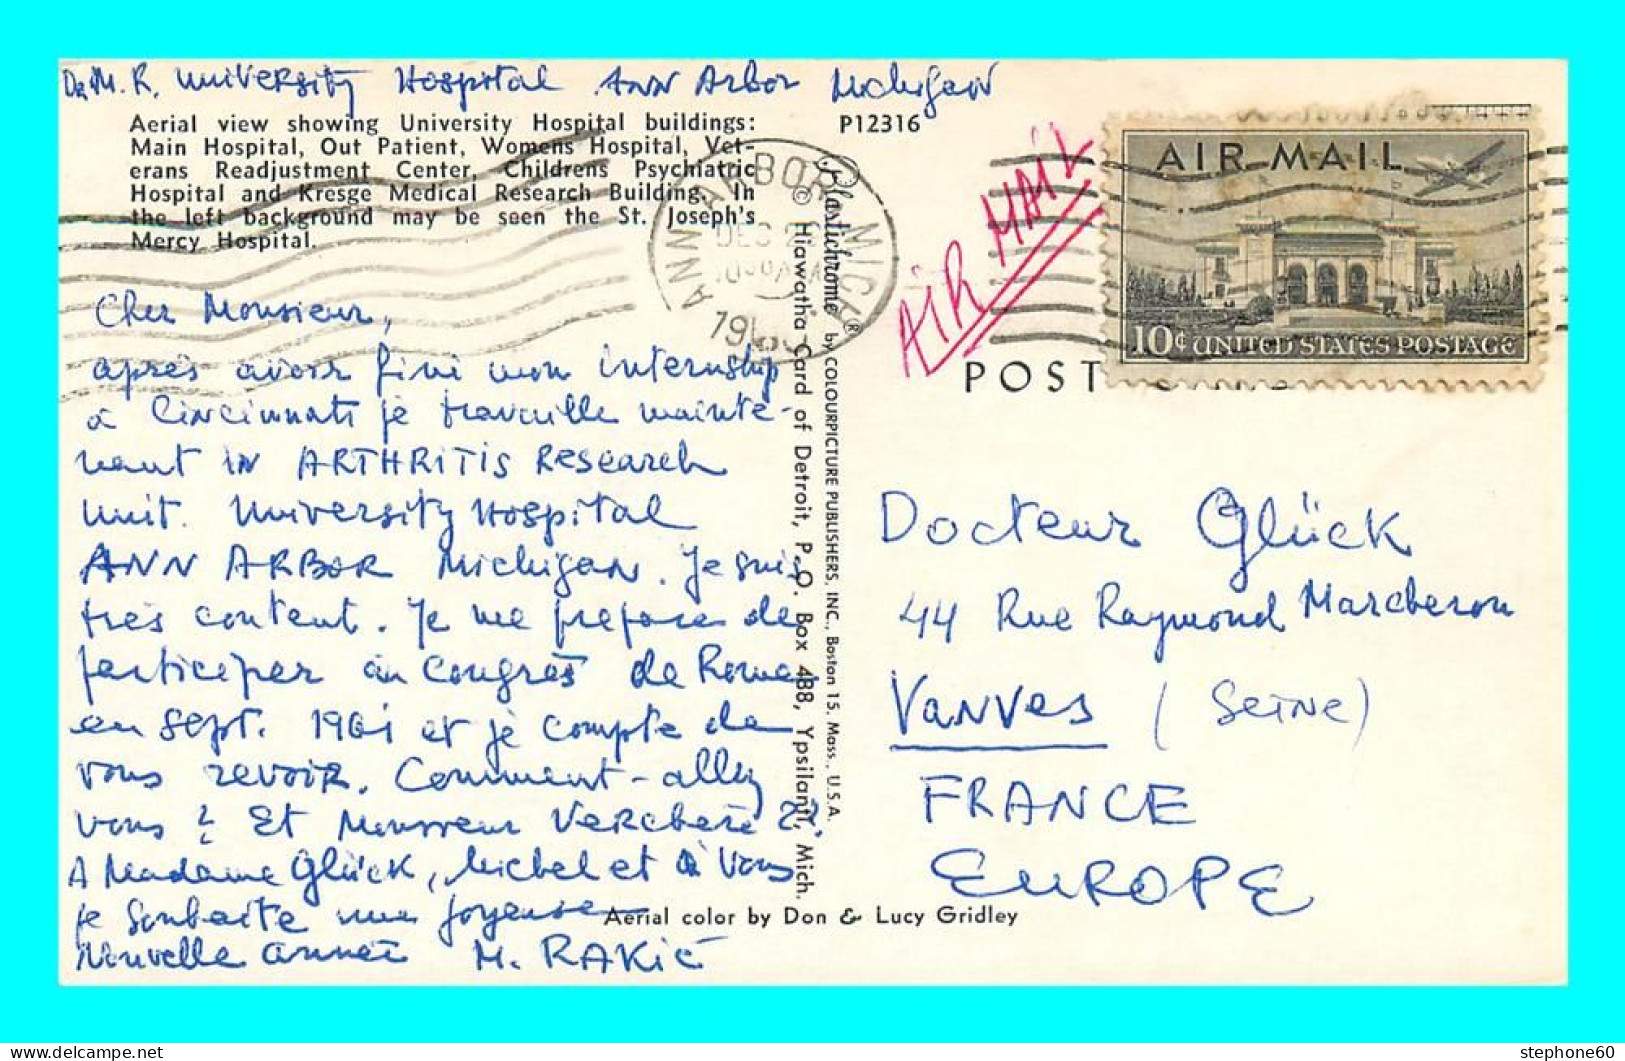 Dr M. R. University Hospital Ann Arbor Michigan
Aerial view showing University Hospital buildings:
Main Hospital, Out Patient, Womens Hospital, Vet-
erans Readjustment Center, Childrens Psychiatric
Hospital and Kresge Medical Research Building. In
the left background may be seen the St. Joseph's
Mercy Hospital.
P12316
ANN ARBOR MICH.
DEC
AM
AIR MAIL
AIR MAIL
10¢ UNITED STATES POSTAGE
POST
Cher Monsieur,
après avoir fini mon internship
à Cincinnati je travaille mainte-
nant in ARTHRITIS Research
Unit. University Hospital
ANN ARBOR Michigan. Je suis
très content. Je me prepare de
participer au Congrès de Rome
en sept. 1961 et je compte de
vous revoir. Comment-allez
vous ? Et Monsieur Verchere ??
A Madame Glück, Michel et à Vous
je souhaite une joyeuse
Nouvelle année M. RAKIĆ
Plastichrome ® by COLOURPICTURE PUBLISHERS, INC., Boston 15, Mass., U.S.A.
© Hiawatha Card of Detroit, P. O. Box 488, Ypsilanti, Mich.
Docteur Glück
44 Rue Raymond Marcheron
Vanves (Seine)
FRANCE
EUROPE
Aerial color by Don & Lucy Gridley
stephone60